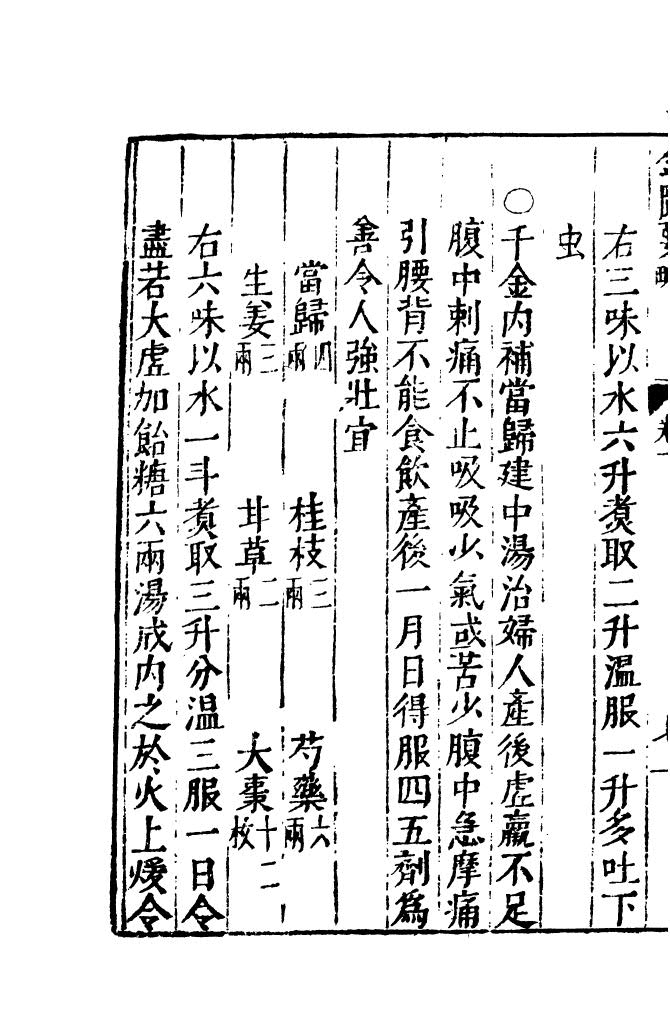 右三味以水六升煑取二升温服一升多吐下
虫
○千金内補當歸建中湯治婦人產後虚羸不足
腹中刺痛不止吸吸少氣或苦少腹中急摩痛
引腰背不能食飲產後一月日得服四五劑為
善令人強壯宜
當歸四兩 桂枝三兩 芍藥六兩
生姜三兩 甘草二兩 大棗十二枚
右六味以水一斗煑取三升分温三服一日令
盡若大虚加飴糖六兩湯成内之於火上煖令